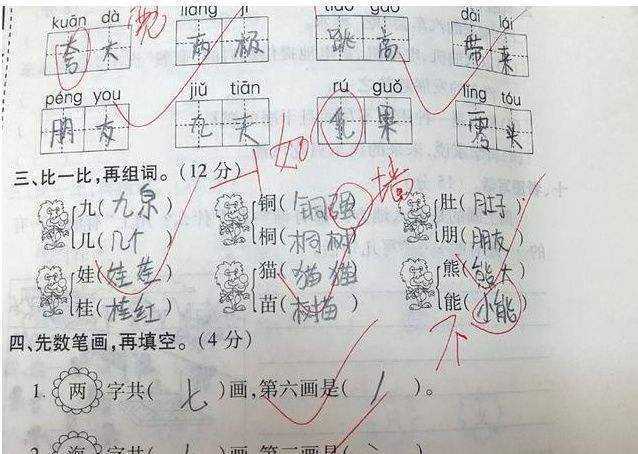 kuān dà liǎng jí tiào gāo dài lái
大 两 极 跳 高 带 来
péng you jiǔ tiān rú guǒ líng tóu
朋 友 九 天 果 零 头
如
三、比一比,再组词。(12分)
九(九泉) 铜(铜强) 墙 肚(肚子)
几(几个) 桐(桐树) 朋(朋友)
娃(娃莲) 猫(猫猫) 熊(熊大)
桂(桂红) 苗(树苗) 能(小能) 不
四、先数笔画,再填空。(4分)
1. 两 字共( 七 )画,第六画是( 丿 )。
字共( )画,第二画是(